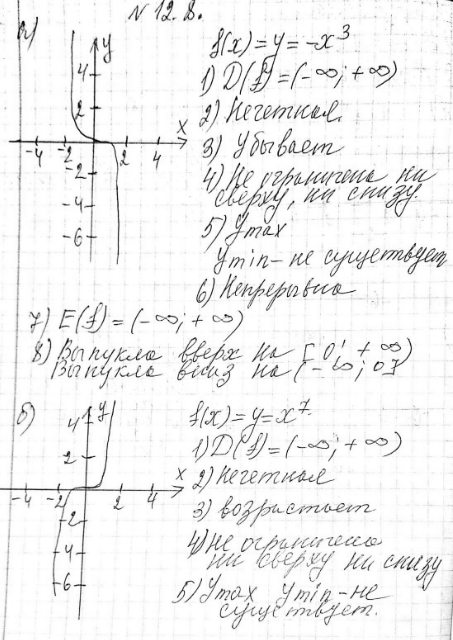 N 12.8.
а)
y
4
2
x
-4 -2 2 4
-2
-4
-6
f(x) = y = -x³
1) D(f) = (-∞; +∞)
2) Нечетная.
3) Убывает
4) Не ограничена ни
сверху, ни снизу.
5) Ymax
Ymin - не существует
6) Непрерывна
7) E(f) = (-∞; +∞)
8) Выпукла вверх на [0; +∞)
Выпукла вниз на (-∞; 0]
б)
y
4
2
x
-4 -2 2 4
-2
-4
-6
f(x) = y = x⁷.
1) D(f) = (-∞; +∞)
2) Нечетная
3) возрастает
4) Не ограничена
ни сверху ни снизу
5) Ymax Ymin - не
существует.